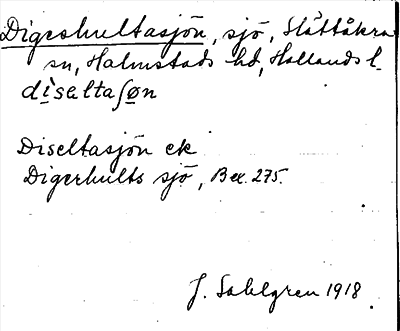 Digeshultasjön, sjö, Slättåkra
sn, Halmstads hd, Hallands l.
dìsaltaʃøn
Diseltasjön ek
Digerhults sjö, Bex. 275.
J. Sahlgren 1918